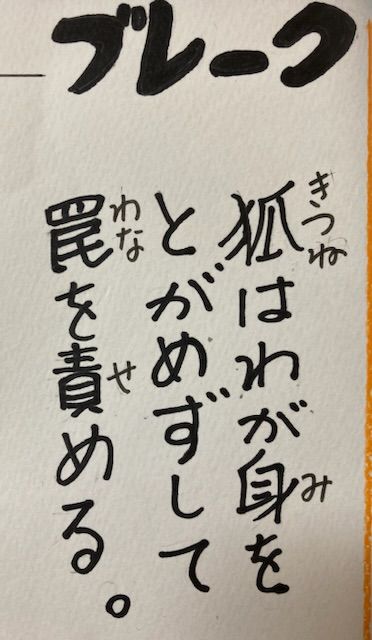 ブレーク
狐はわが身を
とがめずして
罠を責める。
きつね
み
わな
せ